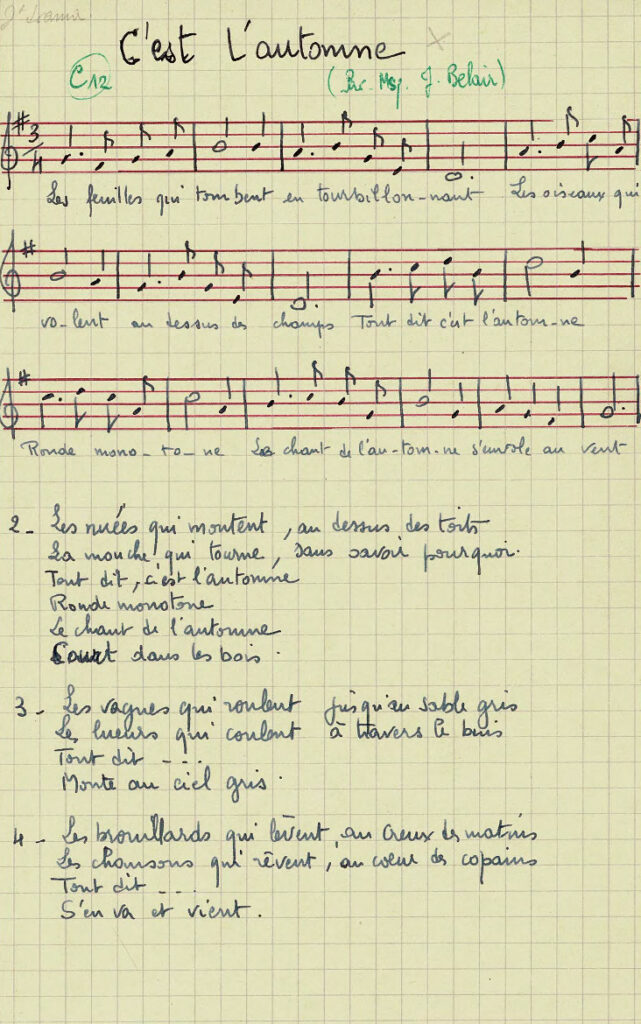 C'est L'automne
C12
(Par. Msg. J. Belair)
3
4
Les feuilles qui tombent en tourbillon-nant Les oiseaux qui
vo-lent au dessus des champs Tout dit c'est l'autom-ne
Ronde mono-to-ne Le chant de l'au-tom-ne s'envole au vent
2- Les nuées qui montent, au dessus des toits
La mouche qui tourne, sans savoir pourquoi.
Tout dit, c'est l'automne
Ronde monotone
Le chant de l'automne
Court dans les bois.
3- Les vagues qui roulent jusqu'au sable gris
Les lueurs qui coulent à travers le buis
Tout dit - - -
Monte au ciel gris.
4- Les brouillards qui lèvent, au creux des matins
Les chansons qui rêvent, au coeur des copains
Tout dit - - -
S'en va et vient.